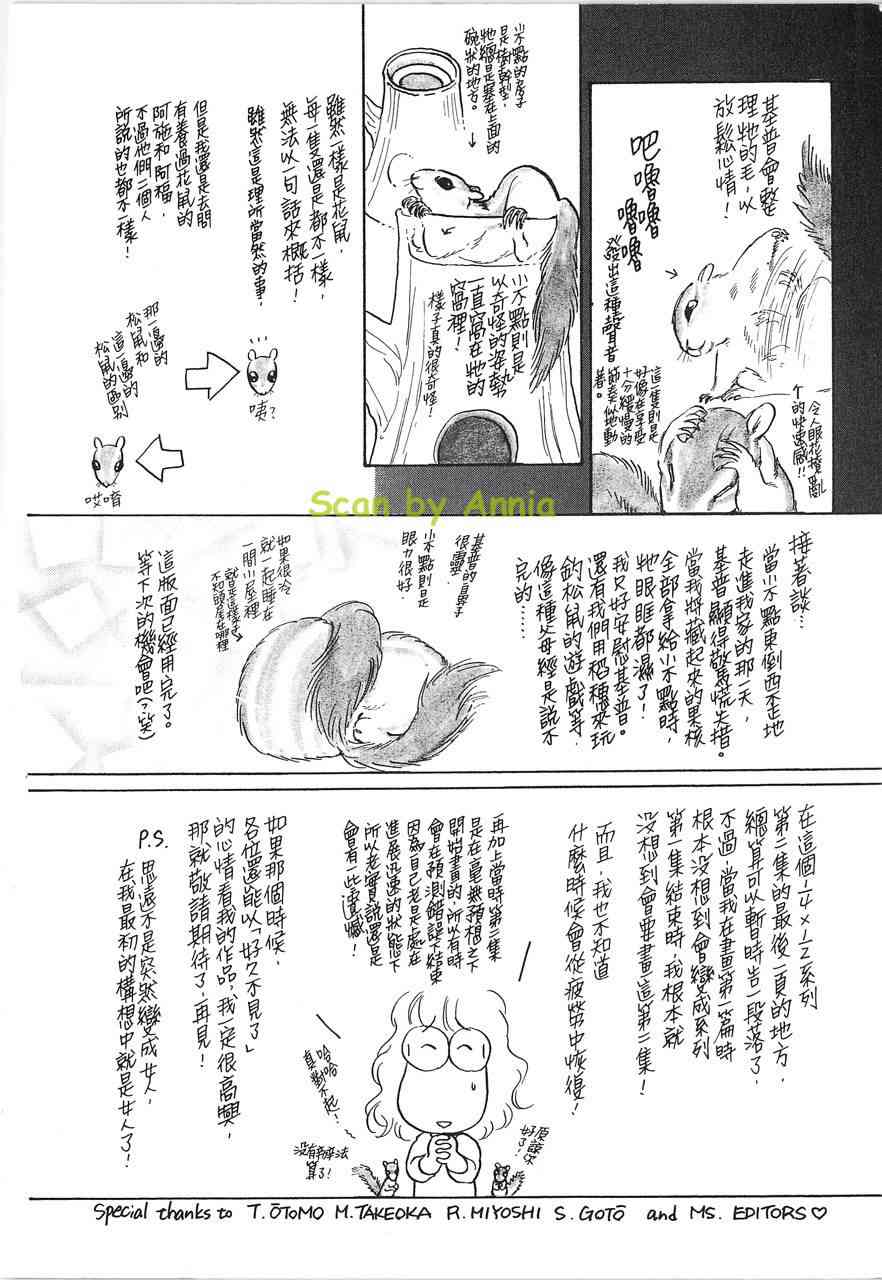 基普會整
理牠的毛，以
放鬆心情！
吧嚕嚕
嚕嚕
發出這種聲音
令人眼花撩亂
的快速感!!
這一隻則是
好像在享受
十分緩慢的
節奏似地動
著。
小不點的房子
是樹幹型，
牠總是塞在上面的
碗狀的地方。
小不點則是
以奇怪的姿勢
一直窩在牠的
窩裡！
樣子真的很奇怪！
雖然一樣是花鼠，
每一隻還是都不一樣，
無法以一句話來概括！
雖然這是理所當然的事，
但是我還是去問
有養過花鼠的
阿施和阿福，
不過他們二個人
所說的也都不一樣！
咦?
那一邊的
松鼠和
這一邊的
松鼠的區別
哎唷
Scan by Annia
接著談…
當小不點東倒西歪地
走進我家的那一天，
基普顯得驚慌失措。
當我將藏起來的果核
全部拿給小不點時，
牠眼眶都濕了！
我又好安慰基普。
還有我們用稻穗來玩
釣松鼠的遊戲等，
像這種父母經是說不
完的……
基普的鼻子
很靈…
小不點則是
眼力很好
如果很冷
就一起睡在
一間小屋裡
就是這樣子
不知頭尾在哪裡
這版面已經用完了。
等下次的機會吧(?笑)
在這個1/4×1/2系列
第二集的最後一頁的地方，
總算可以暫時告一段落了，
不過，當我在畫第一篇時
根本沒想到會變成系列
第一集結束時，我根本就
沒想到會要畫這第二集！
而且，我也不知道
什麼時候會從疲勞中恢復！
再加上當時第二集
是在毫無預想之下
開始畫的，所以有時
會在預測錯誤下結束
因為自己老是處在
進展迅速的狀態下
所以老實說還是
會有一些遺憾！
如果那個時候，
各位還能以「好久不見了」
的心情看我的作品，我一定很高興，
那就敬請期待了，再見！
P.S.
思遠不是突然變成女人，
在我最初的構想中就是女人了！
哈哈
真對不起！
沒有辦法
算了！
原諒
好了！
Special thanks to T.ŌTOMO M.TAKEOKA R.MIYOSHI S.GOTŌ and MS. EDITORS♡